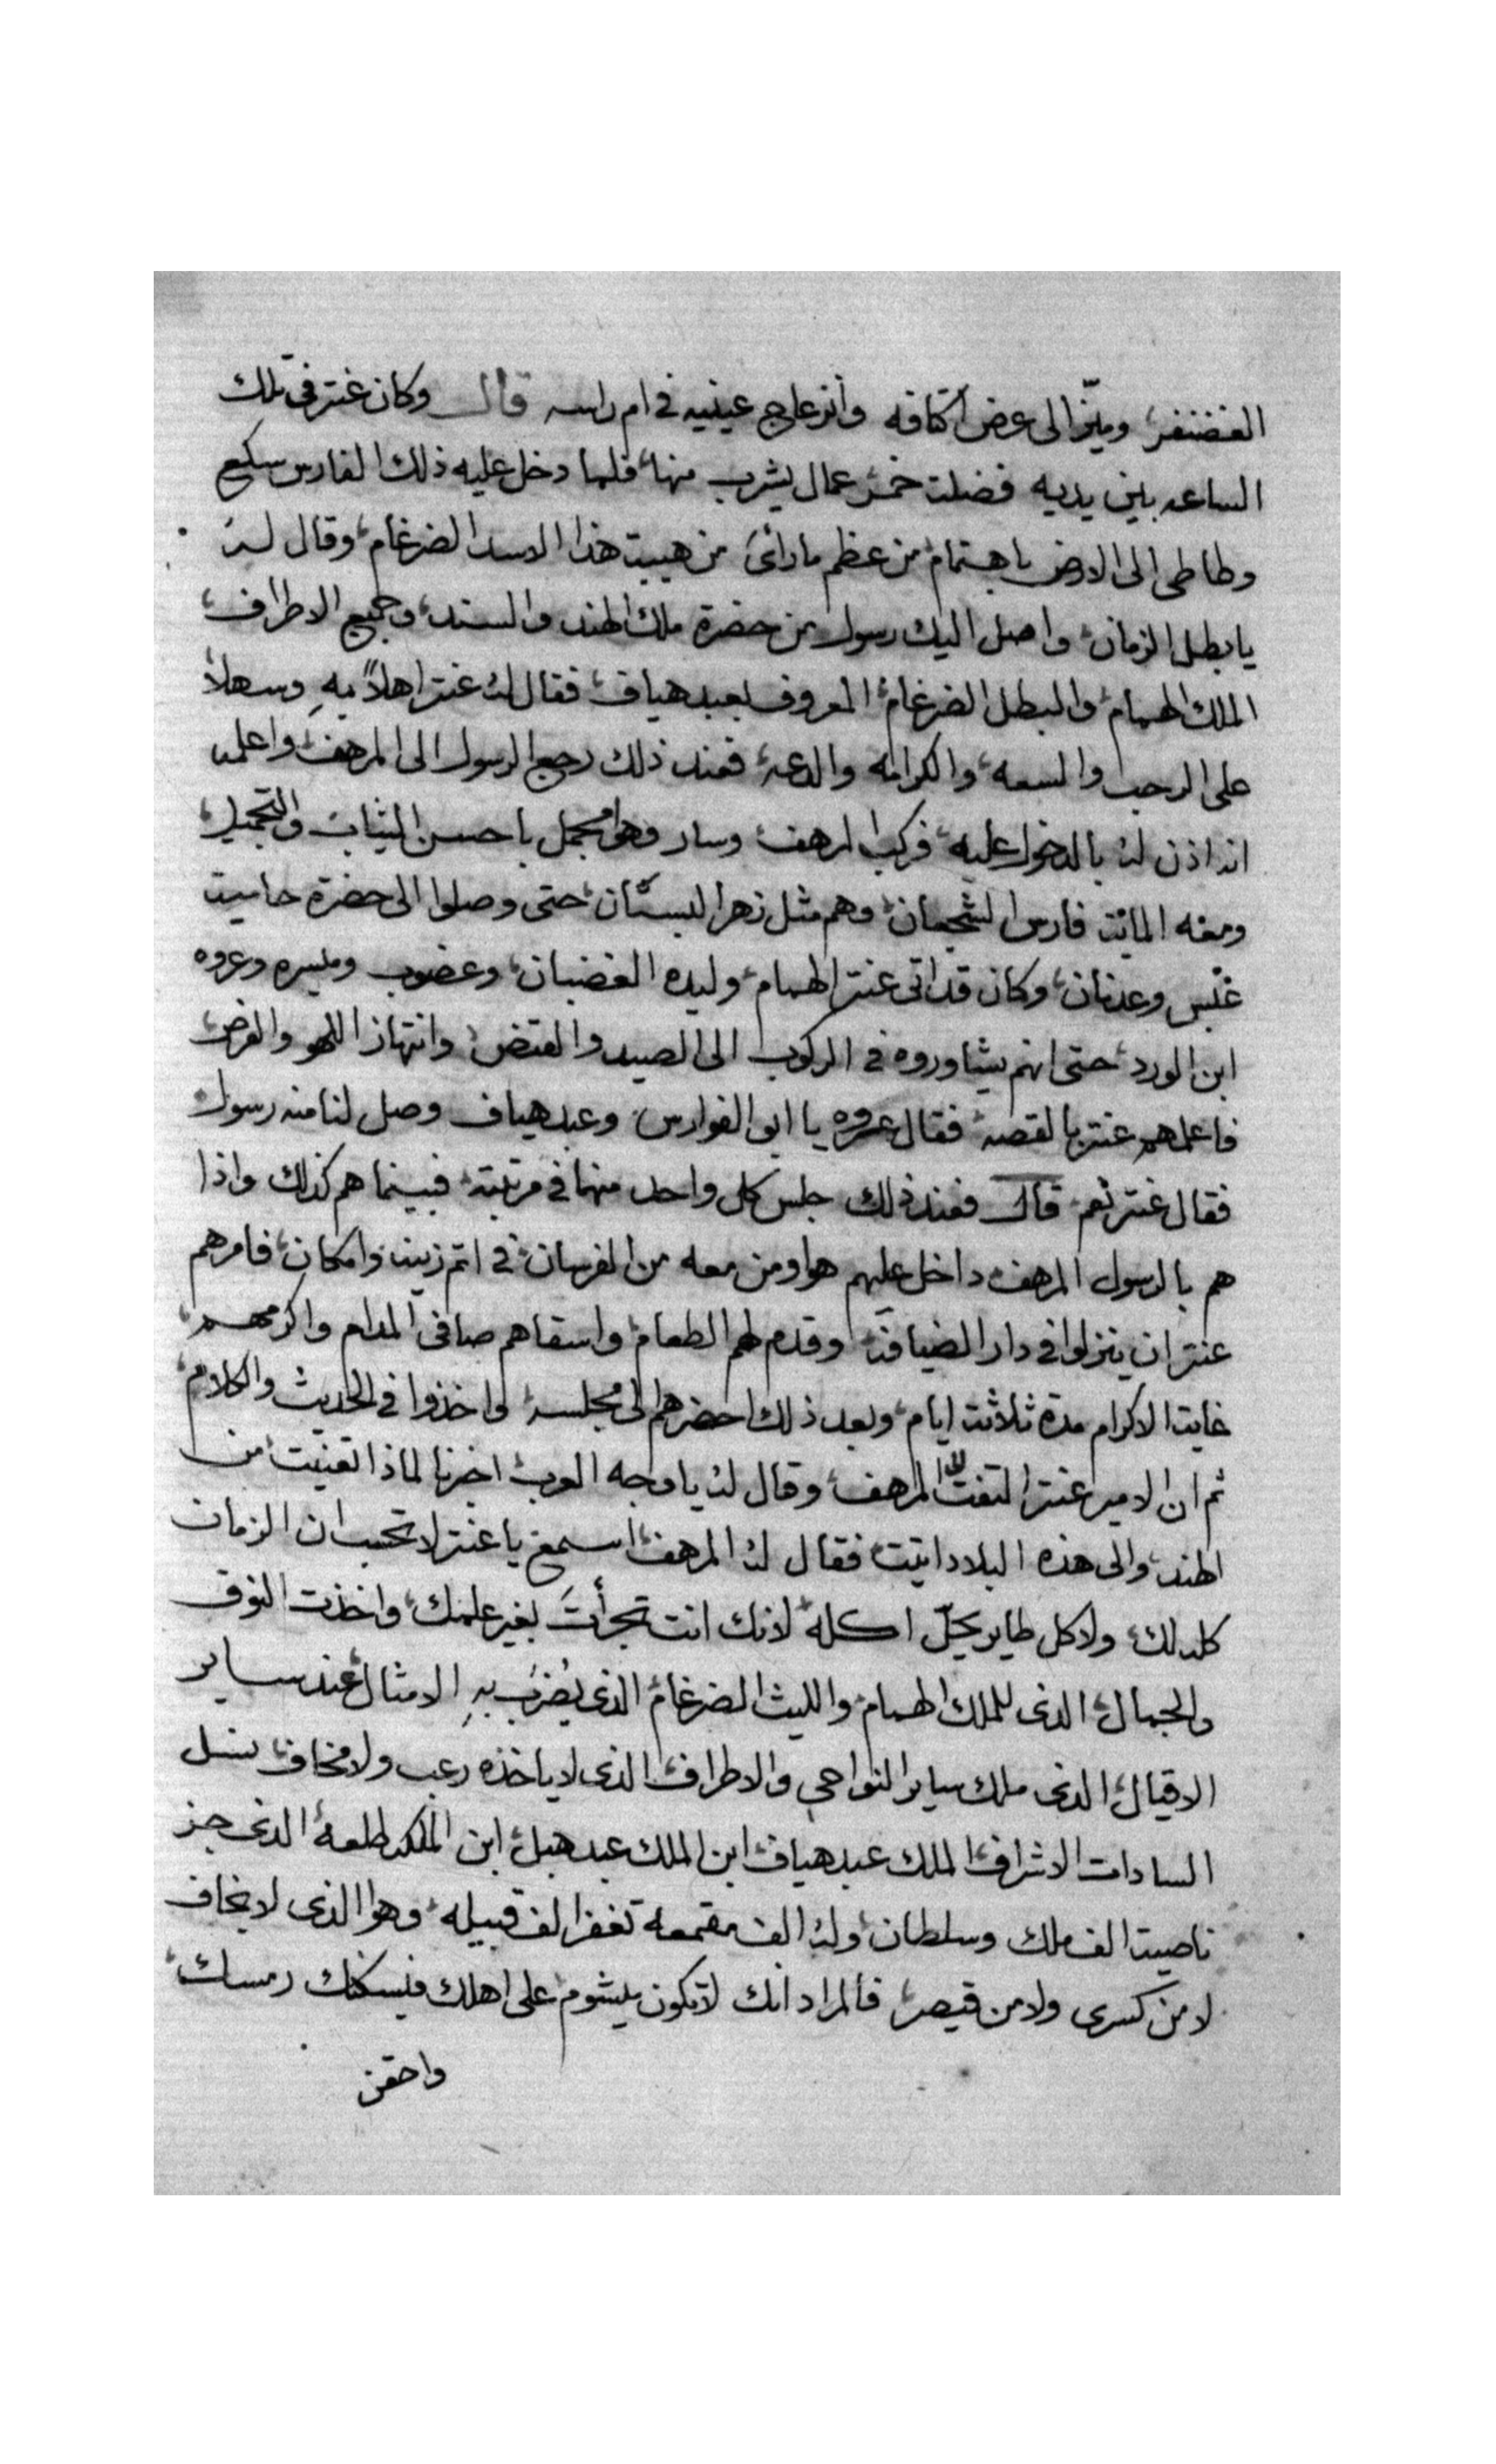 الغضنفر، وميّز الى عرض اكتافه وانزعاج عينيه في ام راسه قال وكان عنتر في تلك
الساعه بين يديه فضلت خمر عمال يشرب منها، فلما دخل عليه ذلك الفارس سكع
وطاطى الى الارض باهتمام، من عظم ما رائ من هيبت هذا الاسد الضرغام، وقال له
يا بطل الزمان، واصل اليك رسول من حضرة ملك الهند والسند، وجميع الاطراف،
الملك الهمام، والبطل الضرغام، المعروف بعبد هياف، فقال له عنتر اهلاً بهِ وسهلاً
على الرحب والسعه، والكرامه والدعه، فعند ذلك رجع الرسول الى المرهف، واعلمه
انه اذن له بالدخول عليه، فركب المرهف، وسار وهو مجمل باحسن الثياب، والتجميل،
ومعه المائت فارس الشجعان، وهم مثل زهر البستان، حتى وصلوا الى حضرة حاميت
عبس وعدنان، وكان قد اتى عنتر الهمام، وليده الغضبان، وغضوب وميسره وعروه
ابن الورد، حتى انهم يشاوروه في الركوب الى الصيد والقنص، وانتهاز اللهو والفرص،
فاعلمهم عنتر بالقصه، فقال عروه يا ابو الفوارس، وعبد هياف وصل لنا منه رسول
فقال عنتر نعم، قال فعند ذلك جلس كل واحد منهما في مرتبته، فبينما هم كذلك واذا
هم بالرسول المرهف، داخل عليهم هو ومن معه من الفرسان، في اتم زينه وامكان، فامرهم
عنتر ان ينزلوا في دار الضيافه، وقدم لهم الطعام، واسقاهم صافى المدام واكرمهم،
غايت الاكرام مدة ثلاثت ايام، وبعد ذلك احضرهم الى مجلسه، واخذوا في الحديث والكلام،
ثم ان الامير عنتر التفت الى المرهف، وقال له يا وجه العرب، اخبرنا لماذا تعنيت، من
الهند، والى هذه البلاد اتيت، فقال له المرهف، اسمع يا عنتر لا تحسب ان الزمان
كله لك، ولا كل طاير يحلّ اكله، لانك انت تجرأتَ بغير علمك، واخذت النوق
والجمال، الذى للملك الهمام، والليث الضرغام، الذى يُضرَب بهِ الامثال، عند ساير
الاقيال، الذى ملك ساير النواحي والاطراف، الذى لا ياخذه رعب ولا مخاف، نسل
السادات الاشراف، الملك عبد هياف، ابن الملك عبد هبل، ابن الملك طلعه، الذى جز
ناصيت الف ملك وسلطان، وله الف مقمعه تغفر الف قبيله، وهو الذى لا يخاف
لا من كسرى ولا من قيصر، فالمراد انك لا تكون ميشوم، على اهلك فيسكنك رمسك،
واحقن